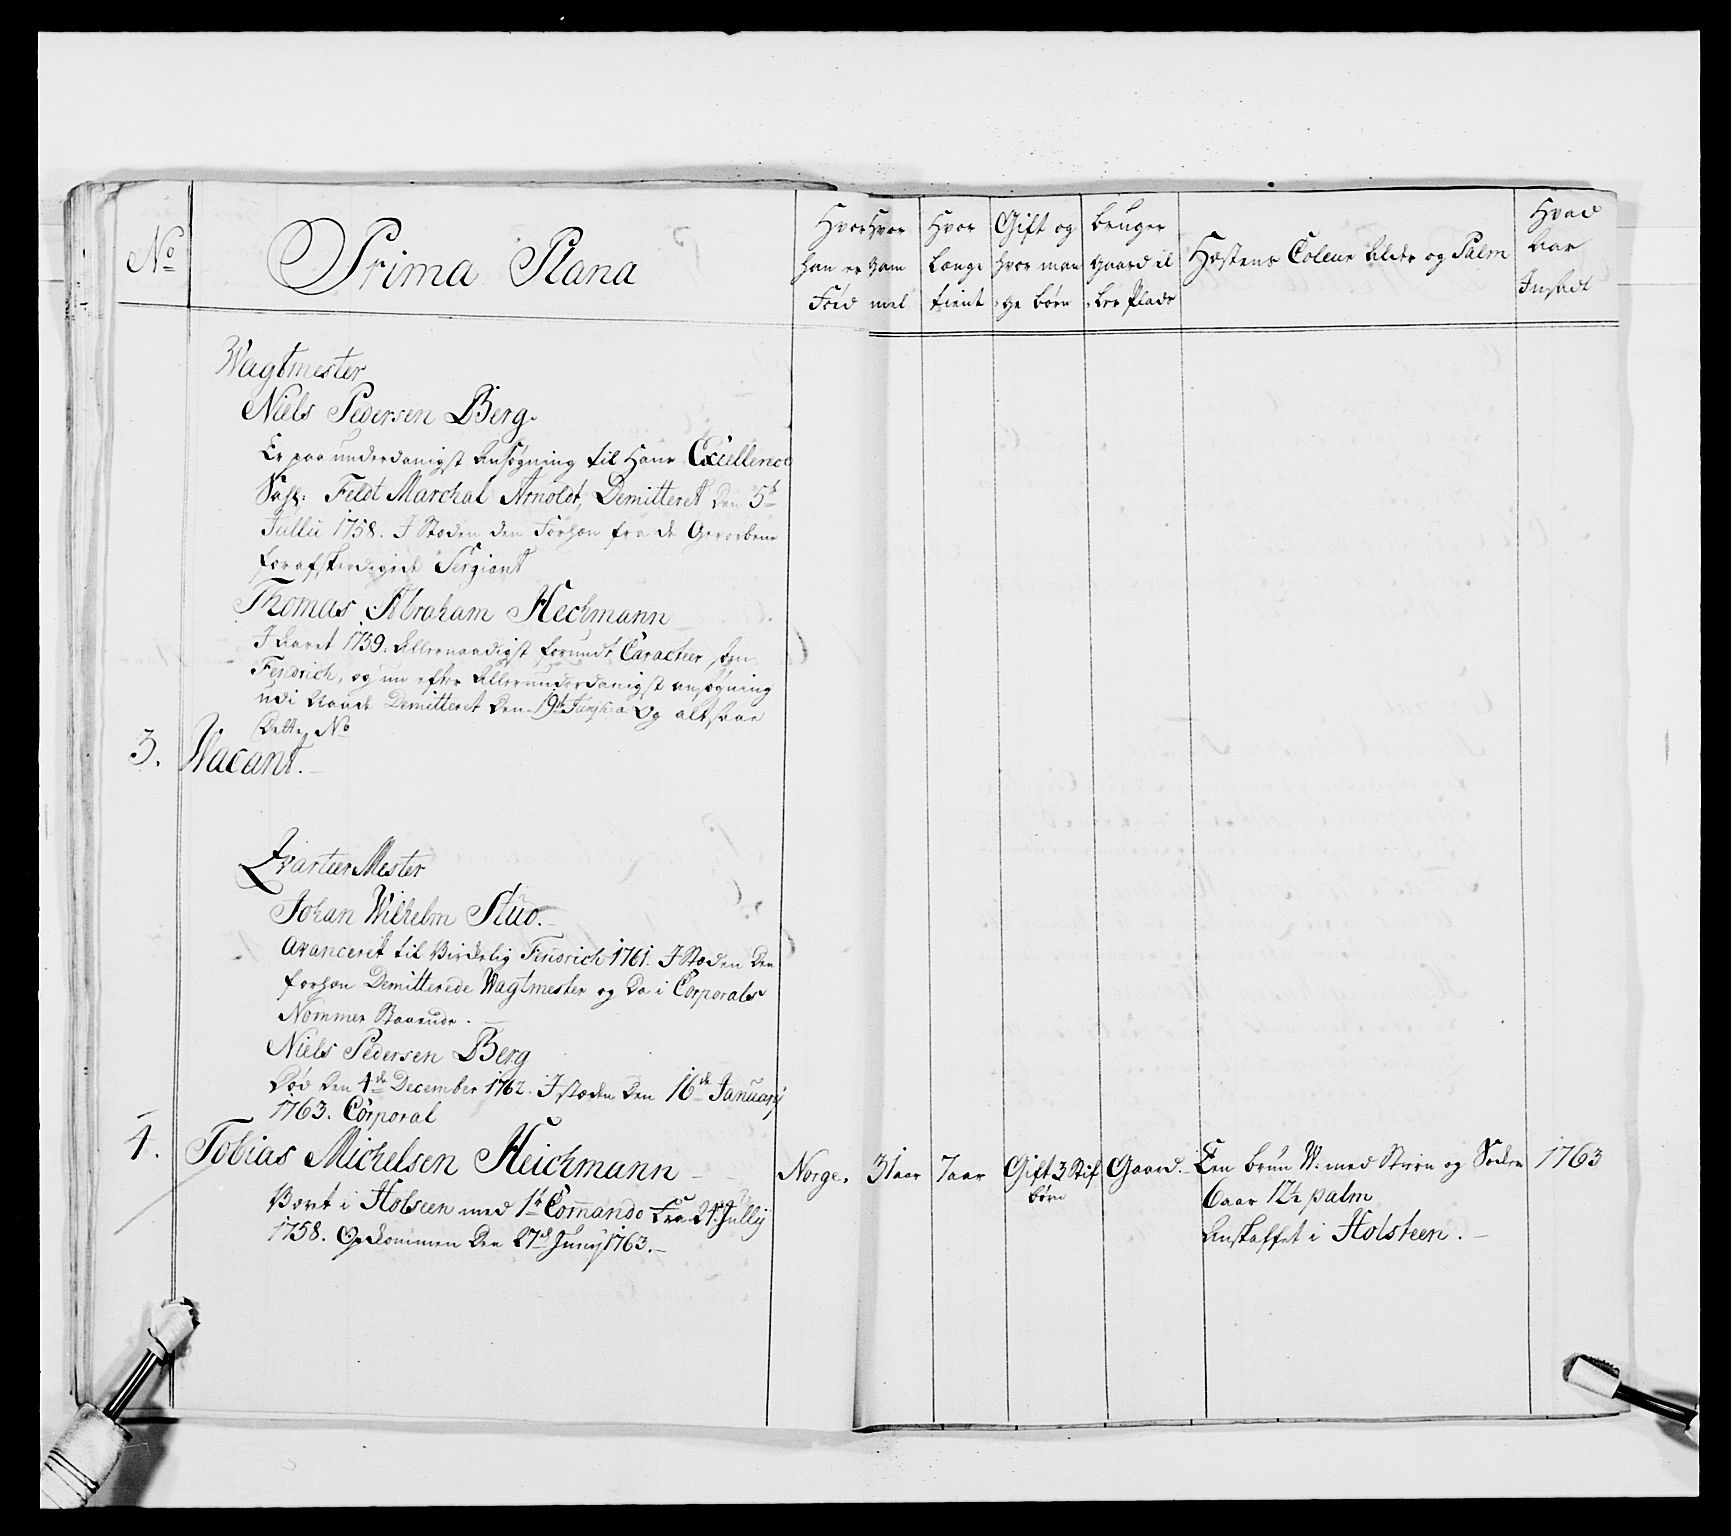 No
Prima Plana
Hvor
han er
Föed
Hvor
gam
mel
Hvor
Længe
tient
Gift og
hvor man
ge börn
bruger
Gaard el
ler Plads
Hæstens Coleur Alder og Palm
Hvad
Aar
Insadt
Wagtmester
Niels Pedersen Berg.
Er paa underdanigst Ansøgning til Hans Excellence
Feldt Marchal Arnoldt, Demitteret den 5t
Jullii 1758. I Steden den forhen fra de Geworbene
forafskedigede Sergiant
Thomas Abraham Heckmann
I Aaret 1759. Allernaadigst forundt Caracteer
Fendrich, og nu efter Allerunderdanigst ansøgning
udi Naade Demitteret den 19t Og altsaa
Dette No
3. Vacant.
Qvarteer Mester
Johan Wilhelm Stud.
Avanceret til Virkelig Fendrich 1761. I Steden den
forhen Demitterede Wagtmester og da i Corporals
Nommer Staaende.
Niels Pedersen Berg
Död den 4de December 1762. I steden den 16de January
1763. Corporal
4. Tobias Michelsen Heichmann
Norge.
31 aar
7 aar
Gift 3 Stif
börn
Gaard.
Een brun W. med Stiern og
6 aar 12½ palm
Anskaffet i Holsteen.
1763
Været i Holsteen med 1t Commando Fra 24 Jullij
1758. Opkommen den 27de Junij 1763.